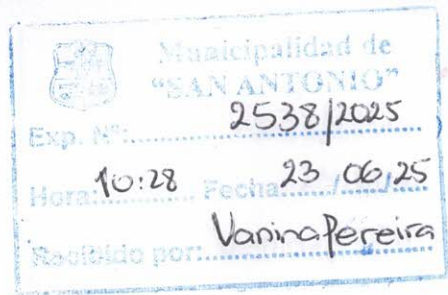 Municipalidad de
"SAN ANTONIO"
Exp. N°:............ 2538/2025
Hora: 10:28 Fecha: 23/06/25
Recibido por: Vanina Pereira